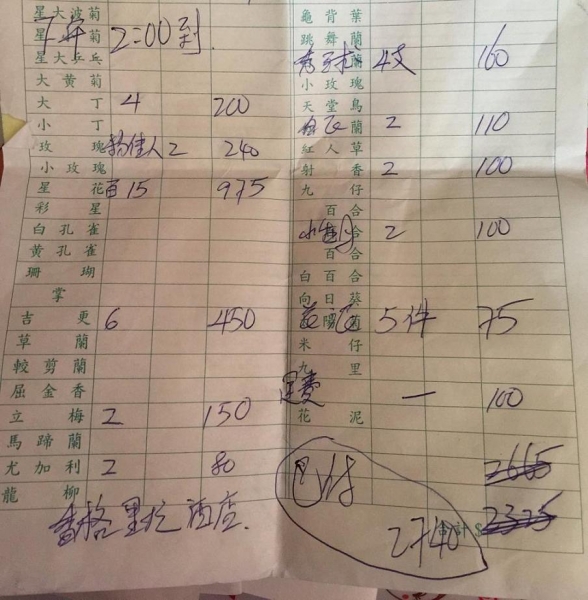 星大波菊
星 菊
下午 2:00 到.
星大乒乓
大黄菊
大丁 4 200
小丁
玫瑰 粉佳人 2 240
小玫瑰
星花 白 15 975
彩星
白孔雀
黄孔雀
珊瑚
掌
吉更 6 450
草蘭
較剪蘭
屈金香
立梅 2 150
馬蹄蘭
尤加利 2 80
龍柳
香格里拉酒店.
龜背葉
跳舞蘭
蘭 4支 160
小玫瑰
天堂鳥
蘭 2 110
紅人草
射香 2 100
九仔
百合
合 2 100
百合
白百合
向日葵
5件 75
米仔
九里
運費 一 100
花泥
2665
已付
合計 $ 2325
2740